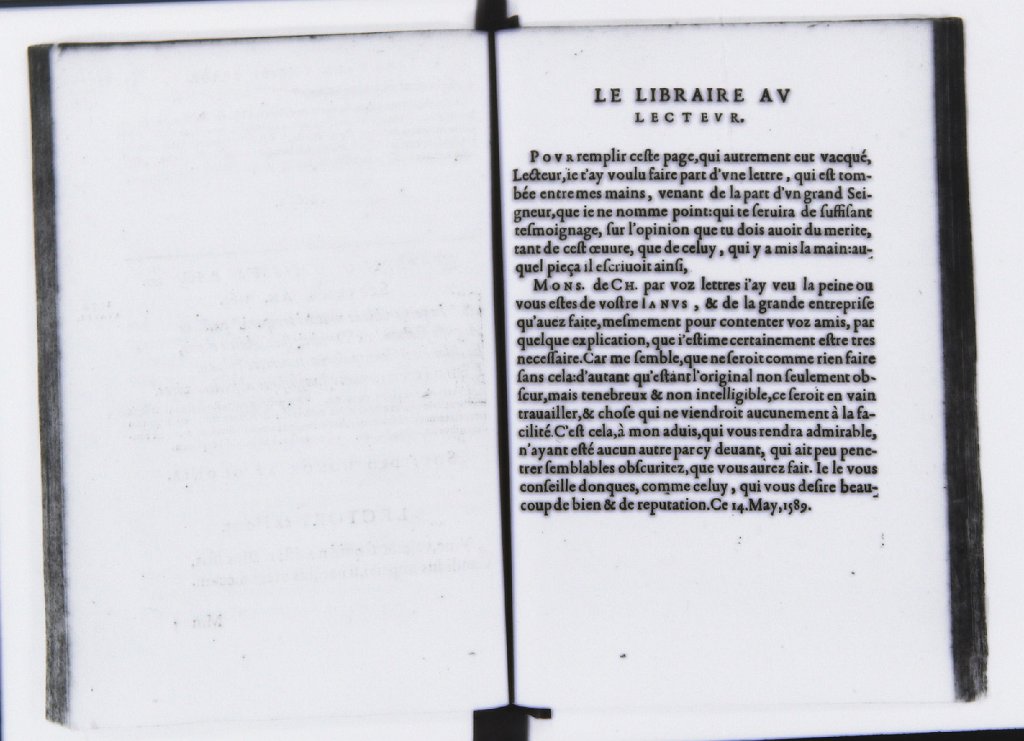 LE LIBRAIRE AV
LECTEVR.
POVR remplir ceſte page, qui autrement eut vacqué,
Lecteur, ie t'ay voulu faire part d'vne lettre, qui eſt tom-
bée entre mes mains, venant de la part d'vn grand Sei-
gneur, que ie ne nomme point: qui te ſeruira de ſuffiſant
teſmoignage, ſur l'opinion que tu dois auoir du merite,
tant de ceſt œuure, que de celuy, qui y a mis la main: au-
quel pieça il eſcriuoit ainſi,
MONS. de CH. par voz lettres i'ay veu la peine ou
vous eſtes de voſtre IANVS, & de la grande entrepriſe
qu'auez faite, meſmement pour contenter voz amis, par
quelque explication, que i'eſtime certainement eſtre tres
neceſſaire. Car me ſemble, que ne ſeroit comme rien faire
ſans cela: d'autant qu'eſtant l'original non ſeulement ob-
ſcur, mais tenebreux & non intelligible, ce ſeroit en vain
trauailler, & choſe qui ne viendroit aucunement à la fa-
cilité. C'eſt cela, à mon aduis, qui vous rendra admirable,
n'ayant eſté aucun autre par cy deuant, qui ait peu pene-
trer ſemblables obſcuritez, que vous aurez fait. Ie le vous
conſeille donques, comme celuy, qui vous deſire beau-
coup de bien & de reputation. Ce 14. May, 1589.